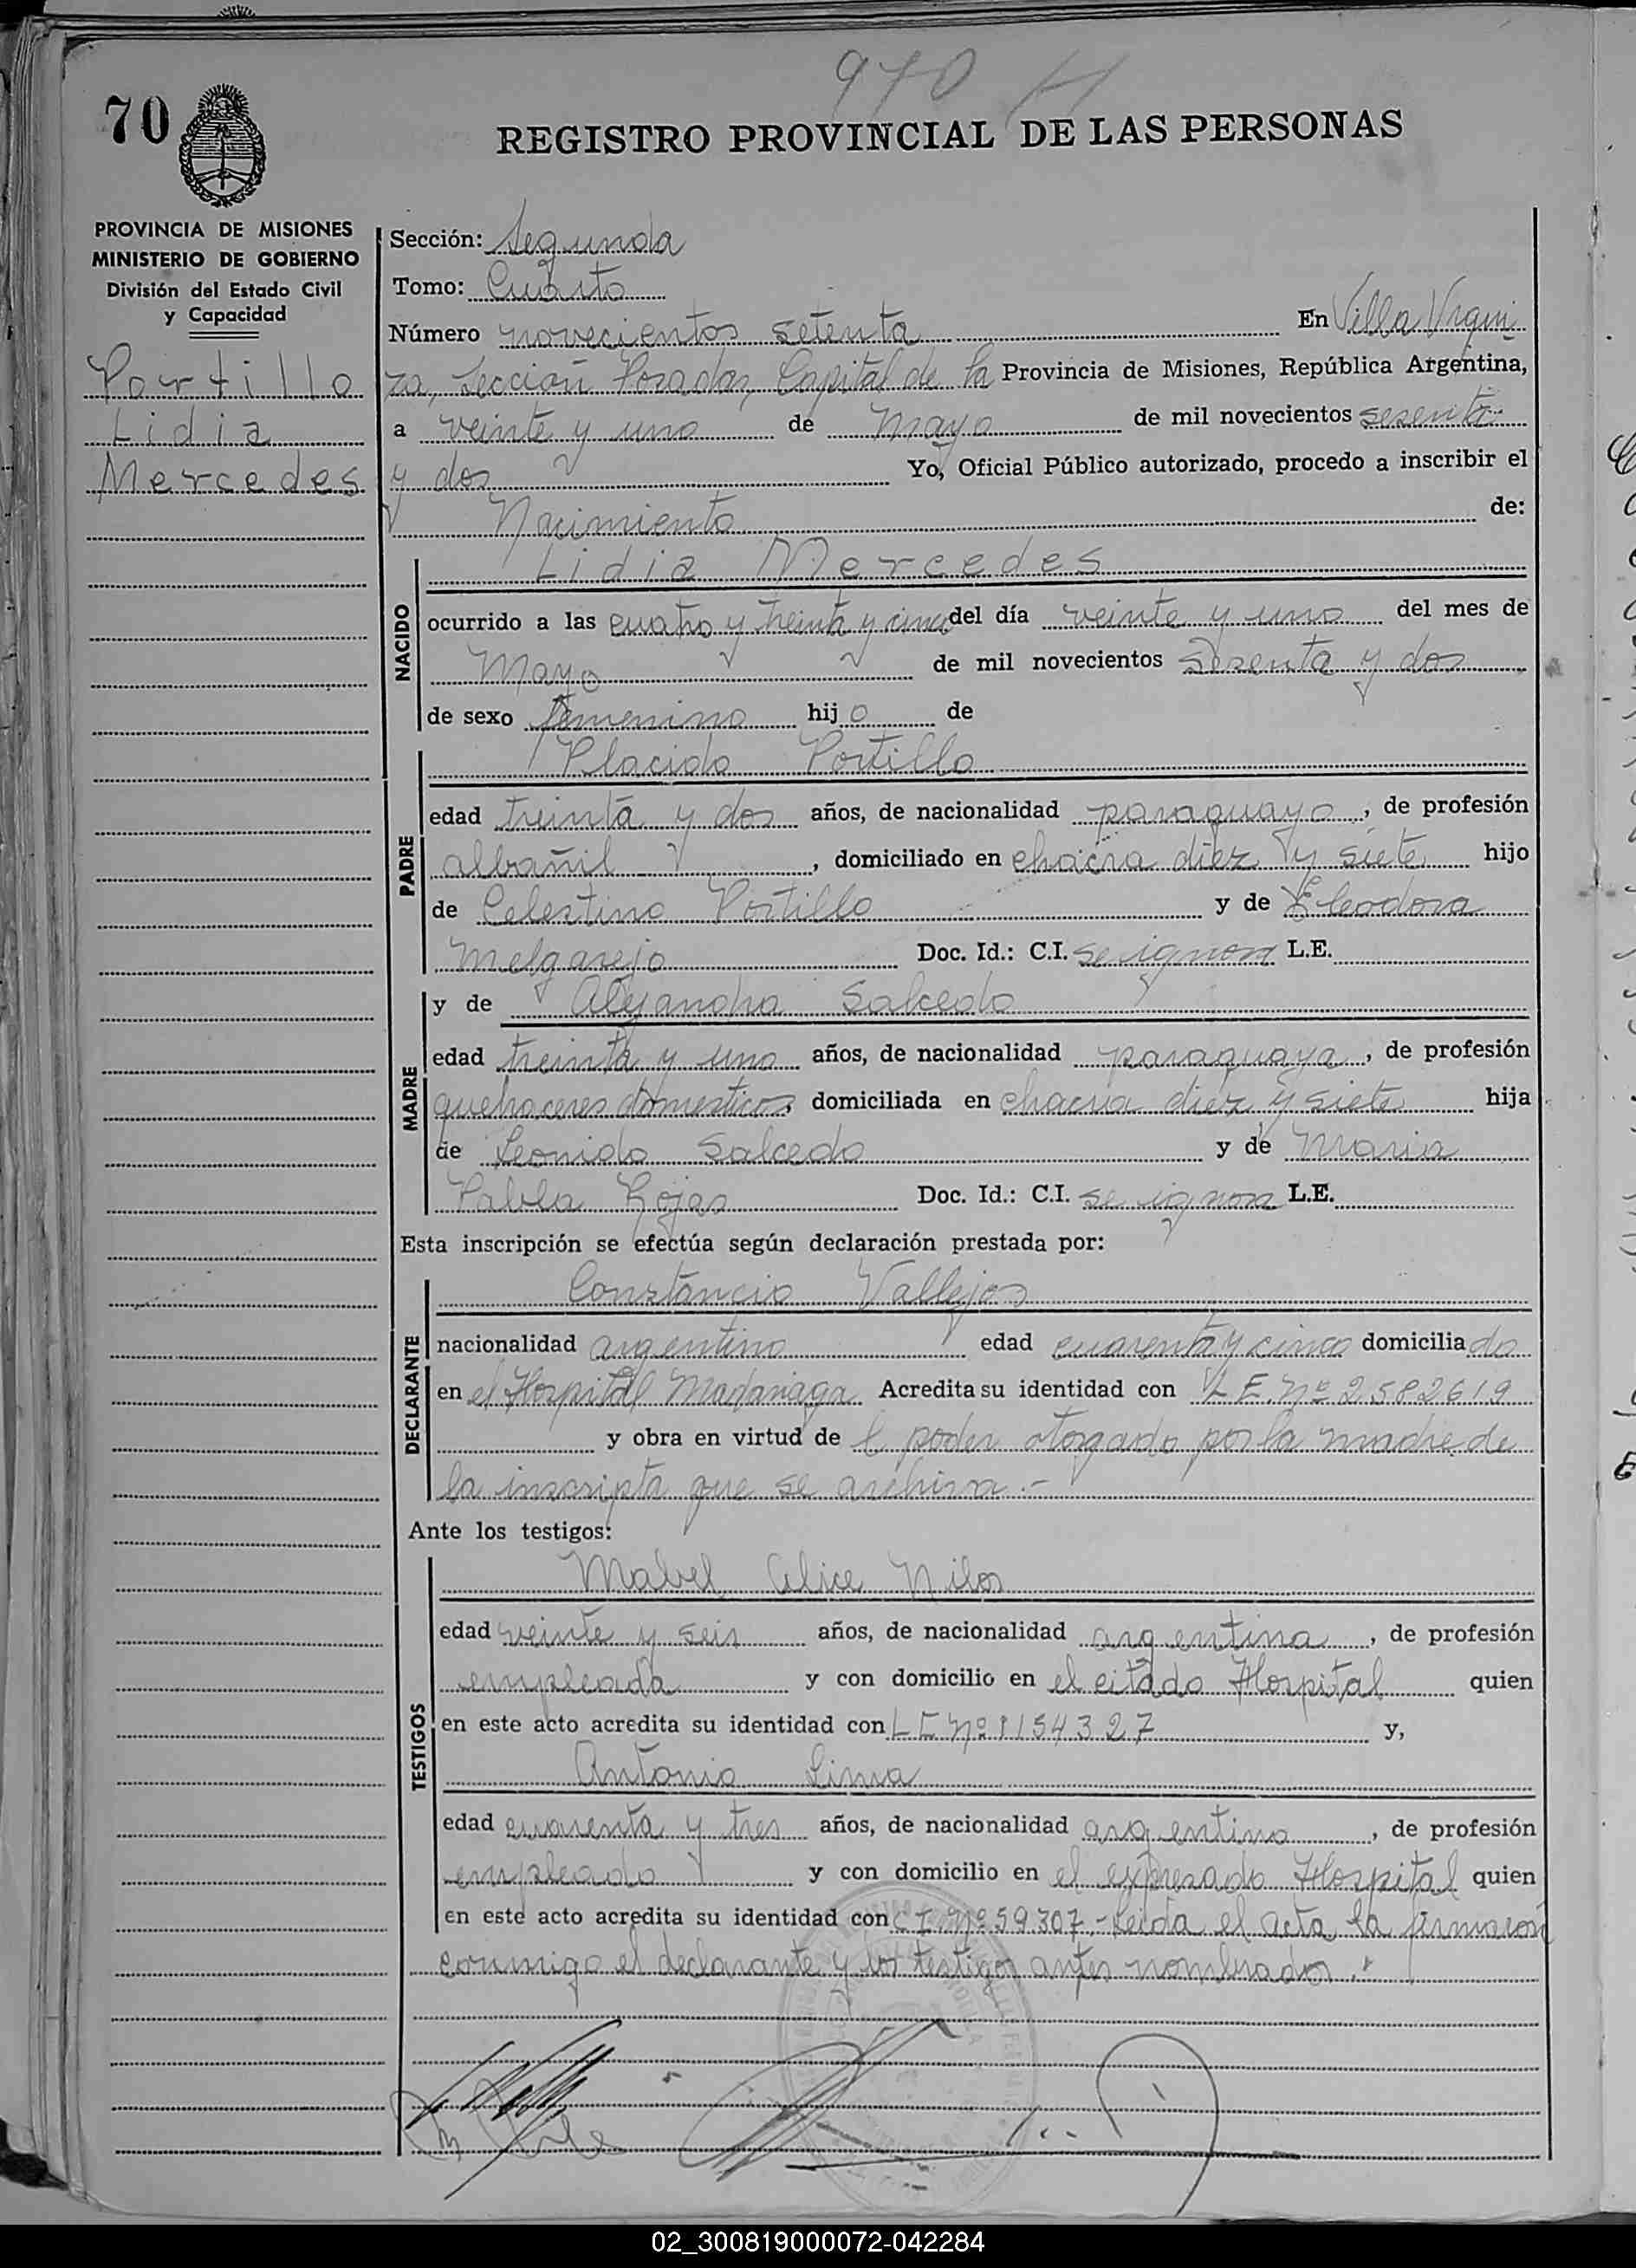 970 H
70
REGISTRO PROVINCIAL DE LAS PERSONAS
PROVINCIA DE MISIONES
MINISTERIO DE GOBIERNO
División del Estado Civil
y Capacidad
Portillo
Lidia
Mercedes
Sección: Segunda
Tomo: Cuarto
Número novecientos setenta En Villa Urqui
za, Sección Posadas, Capital de la Provincia de Misiones, República Argentina,
a veinte y uno de Mayo de mil novecientos sesenta
y dos Yo, Oficial Público autorizado, procedo a inscribir el
Nacimiento de:
NACIDO
Lidia Mercedes
ocurrido a las cuatro y treinta y cinco del día veinte y uno del mes de
Mayo de mil novecientos sesenta y dos
de sexo femenino hijo de
PADRE
Placido Portillo
edad treinta y dos años, de nacionalidad paraguayo, de profesión
albañil, domiciliado en chacra diez y siete hijo
de Celestino Portillo y de Eleodora
Melgarejo Doc. Id.: C.I. se ignora L.E.
MADRE
y de Alejandra Salcedo
edad treinta y uno años, de nacionalidad paraguaya, de profesión
quehaceres domesticos domiciliada en chacra diez y siete hija
de Leonido Salcedo y de Maria
Pabla Rojas Doc. Id.: C.I. se ignora L.E.
Esta inscripción se efectúa según declaración prestada por:
DECLARANTE
Constancio Vallejos
nacionalidad argentino edad cuarenta y cinco domiciliado
en el Hospital Madariaga Acredita su identidad con L E. Nº 2582619
y obra en virtud de l poder otorgado por la madre de
la inscripta que se archiva.-
Ante los testigos:
TESTIGOS
Mabel Alice Nilos
edad veinte y seis años, de nacionalidad argentina, de profesión
empleada y con domicilio en el citado Hospital quien
en este acto acredita su identidad con L E Nº 1154327 y,
Antonio Lima
edad cuarenta y tres años, de nacionalidad argentino, de profesión
empleado y con domicilio en el expresado Hospital quien
en este acto acredita su identidad con C I Nº 59.307.- Leida el acta la firmaron
conmigo el declarante y los testigos antes nombrados.-
02_300819000072-042284